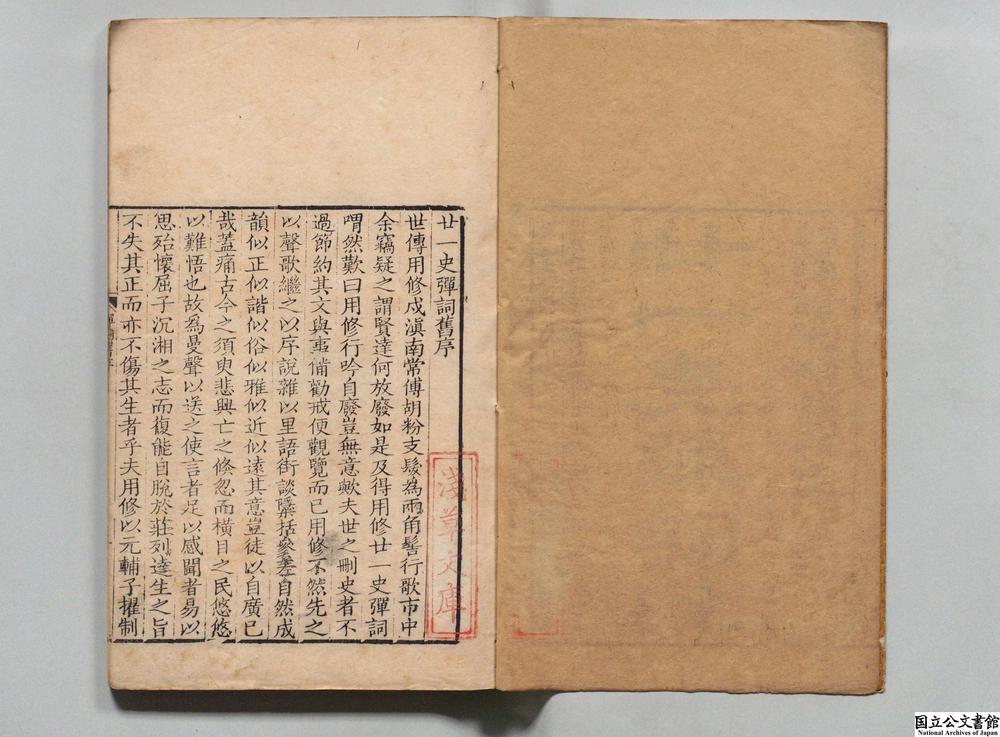 廿一史彈詞舊序
世傳用修戍滇南常傅胡粉支髮為兩角髻行歌市中
余竊疑之謂賢達何放廢如是及得用修廿一史彈詞
喟然歎曰用修行吟自廢豈無意歟夫世之刪史者不
過節約其文與事備勸戒便觀覽而已用修不然先之
以聲歌繼之以序說雜以里語街談隱括參差自然成
韻似正似諧似俗似雅似近似遠其意豈徒以自廣已
哉蓋痛古今之須臾悲興亡之倏忽而橫目之民悠悠
以難悟也故為曼聲以送之使言者足以感聞者易以
思殆懷屈子沉湘之志而復能自脫於莊列達生之旨
不失其正而亦不傷其生者乎夫用修以元輔子擢制
淺草文庫
国立公文書館
National Archives of Japan